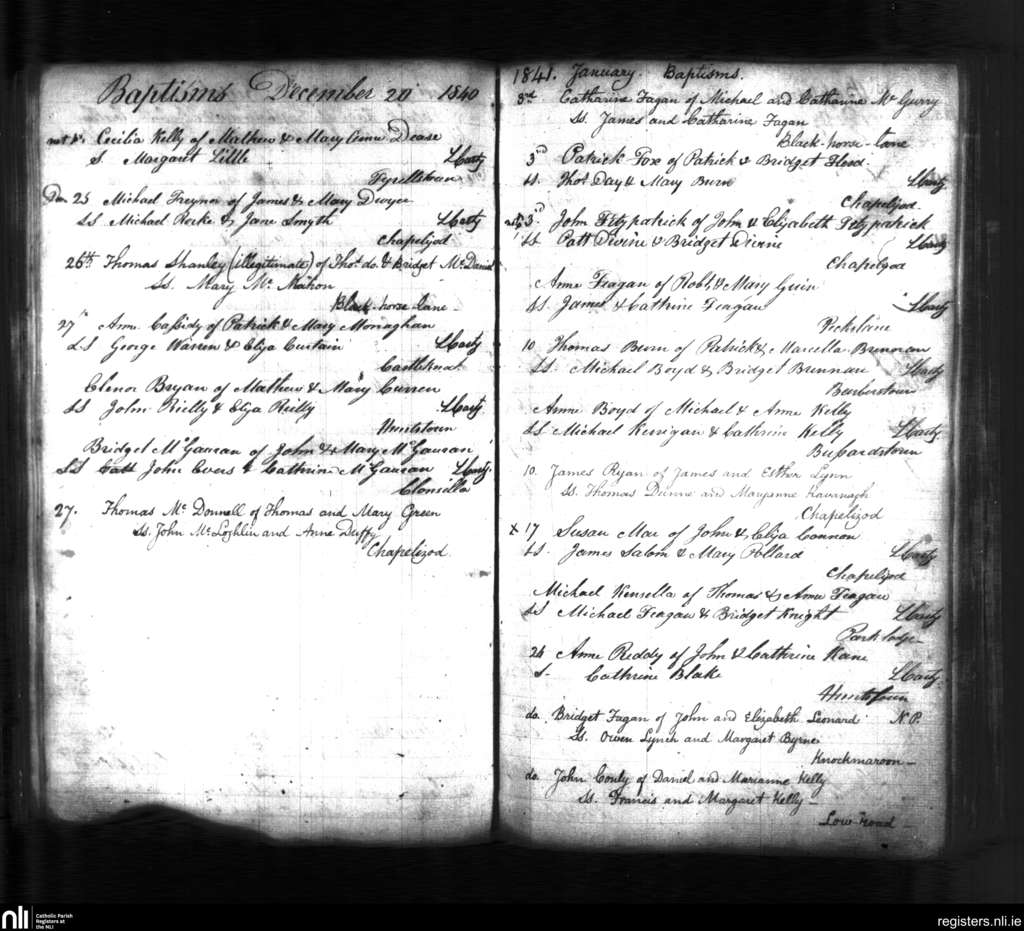 Baptisms December 20 1840
Cecilia Kelly of Mathew & Mary Anne Dease
S. Margaret Little LCarty
Tyrellstown
Dec. 25 Michael Freyner of James & Mary Dwyer
SS Michael Rorke & Jane Smyth LCarty
Chapelizod
26th Thomas Shanley (illegitimate) of Thos. do. & Bridget McDaniel
Ss. Mary McMahon
Black-horse-lane-
27th Anne Cassidy of Patrick & Mary Monaghan
SS George Warren & Eliza Curtain LCarty
Castleknock
Elenor Bryan of Mathew & Mary Curren
SS John Reilly & Eliza Reilly LCarty
Huntstown
Bridget McGauran of John & Mary McGauran
SS John Evers & Cathrine McGauran LCarty
Clonsilla
27. Thomas McDonnell of Thomas and Mary Green
Ss. John McLoghlin and Anne Duffy
Chapelizod
1841. January. Baptisms.
3rd Catharine Fagan of Michael and Catharine McGurry
Ss. James and Catharine Fagan
Black-horse-lane
3rd Patrick Foxe of Patrick & Bridget Flood
SS. Thos. Day & Mary Burn LCarty
Chapelizod
3rd John Fitzpatrick of John & Elizabeth Fitzpatrick
SS Patt Divine & Bridget Divine LCarty
Chapelizod
Anne Feagan of Robt. & Mary Guin
SS. James & Cathrine Feagan LCarty
Peckslane
10 Thomas Burn of Patrick & Marcella Brennan
SS. Michael Boyd & Bridget Brunnan LCarty
Burberstown
Anne Boyd of Michael & Anne Kelly
SS Michael Kerrigan & Cathrine Kelly LCarty
Buzzardstown
10. James Ryan of James and Esther Lynn
Ss. Thomas Dunne and Maryanne Kavanagh
Chapelizod
x 17 Susan Mac of John & Eliza Connon
SS. James Salom & Mary Pollard LCarty
Chapelizod
Michael Kensella of Thomas & Anne Feagan
SS Michael Feagan & Bridget Knight LCarty
Park lodge-
24 Anne Reddy of John & Cathrine Kane
S- Cathrine Blake LCarty
Huntstown
do. Bridget Fagan of John and Elizabeth Leonard N.P.
Ss. Owen Lynch and Margaret Byrne
Knockmaroon-
do. John Conly of Daniel and Marianne Kelly
Ss. Francis and Margaret Kelly-
Low-Road-
nli Catholic Parish
Registers at
the NLI
registers.nli.ie